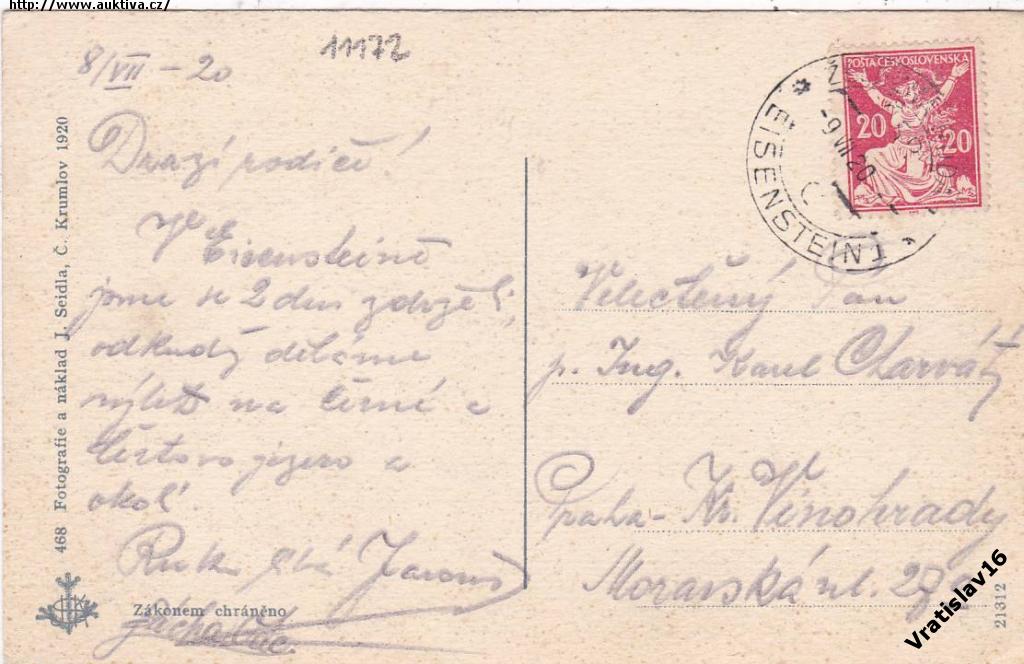 http://www.auktiva.cz/
11172
8/VII – 20
Drazí rodiče!
V Eisensteině
jsme se 2 dny zdrželi,
odkudž děláme
výlet na Černé a
Čertovo jezero a
okolí.
Ruku líbá
Zákonem chráněno
468 Fotografie a náklad J. Seidla, Č. Krumlov 1920
POŠTA ČESKOSLOVENSKÁ
20 20
* EISENSTEIN
-9 VII 20
Velectěný Pan
p. Ing. Karel Charvát
Praha - Kr. Vinohrady
Moravská ul.
21312
Vratislav16